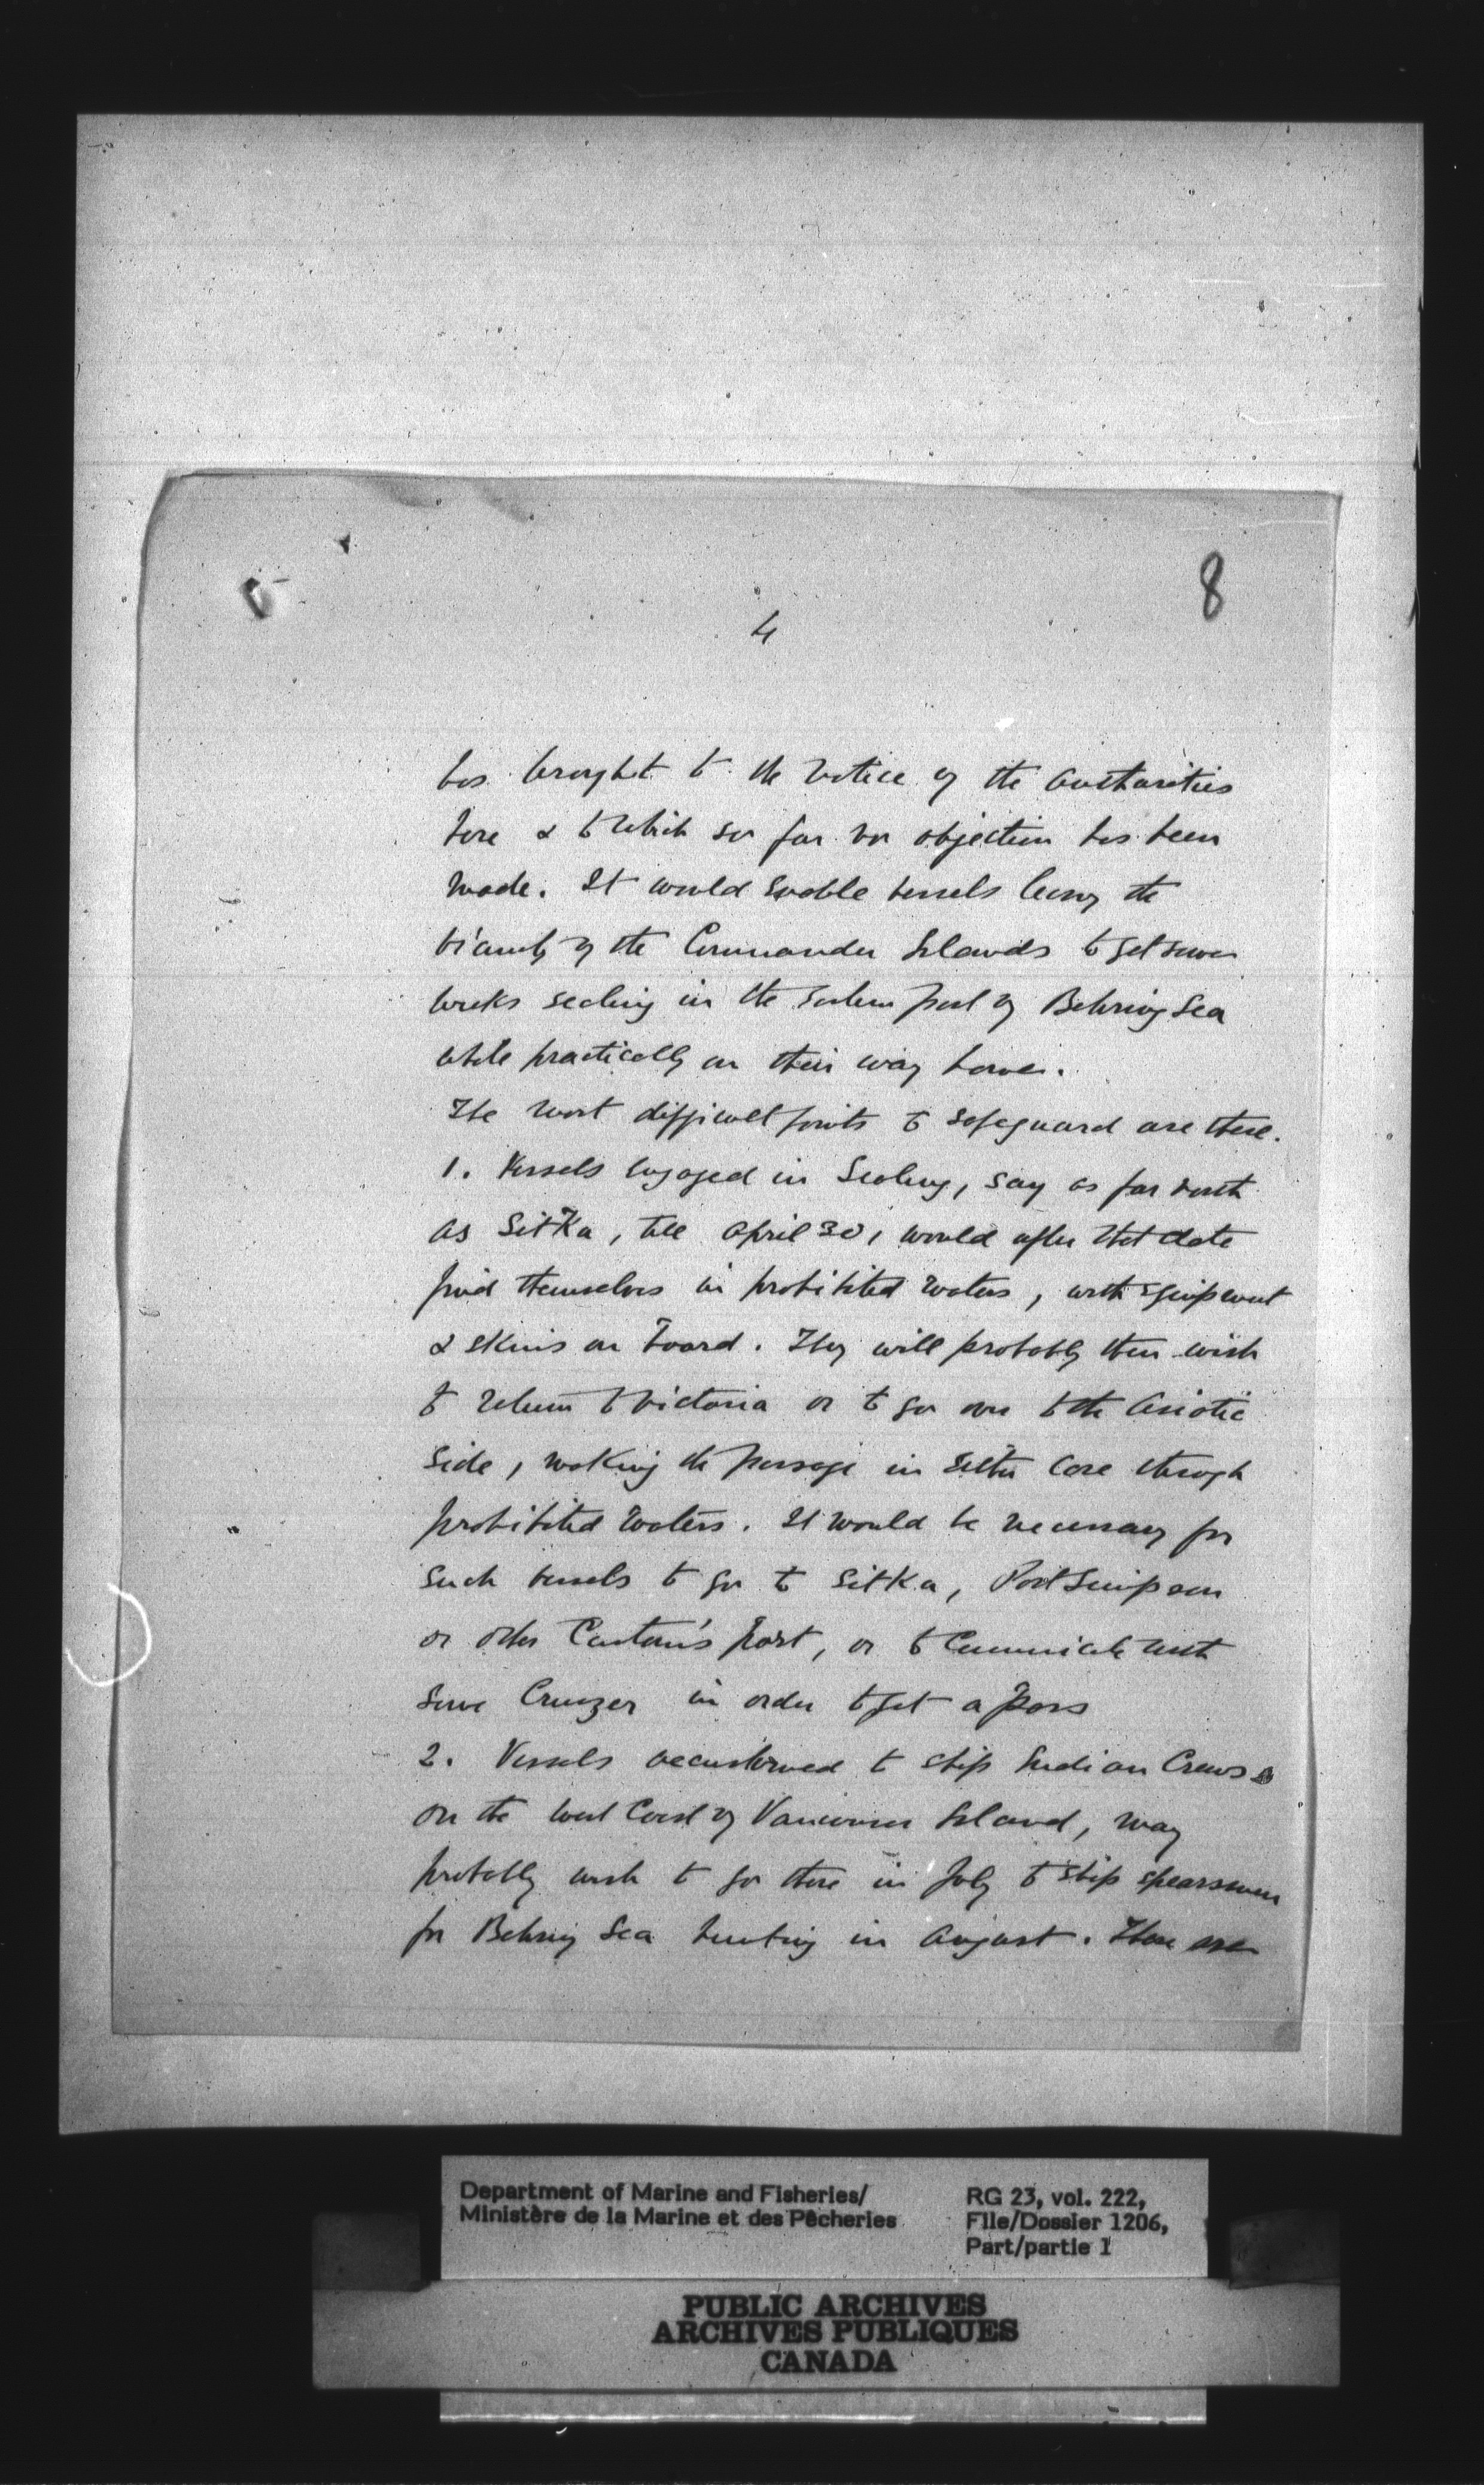 8
4
has brought to the notice of the authorities
here & to which so far no objection has been
made. It would enable vessels leavg the
vicinity of the Commander Islands to get some
weeks sealing in the eastern part of Behring Sea
while practically on their way home.
The most difficult points to safeguard are these.
1. Vessels engaged in Sealing, say as far north
as Sitka, till April 30, would after that date
find themselves in prohibited waters, with equipment
& skins on board. They will probably then wish
to return to Victoria or to go over to the Asiatic
side, making the passage in either case through
prohibited waters. It would be necessary for
such vessels to go to Sitka, Port Simpson
or other Custom's port, or to Communicate with
some Cruizer in order to get a pass
2. Vessels accustomed to ship Indian Crews
on the West Coast of Vancouver Island, may
probably wish to go there in July to ship spearsmen
for Behring Sea hunting in August. These are
Department of Marine and Fisheries/
Ministère de la Marine et des Pêcheries
RG 23, vol. 222,
File/Dossier 1206,
Part/partie 1
PUBLIC ARCHIVES
ARCHIVES PUBLIQUES
CANADA